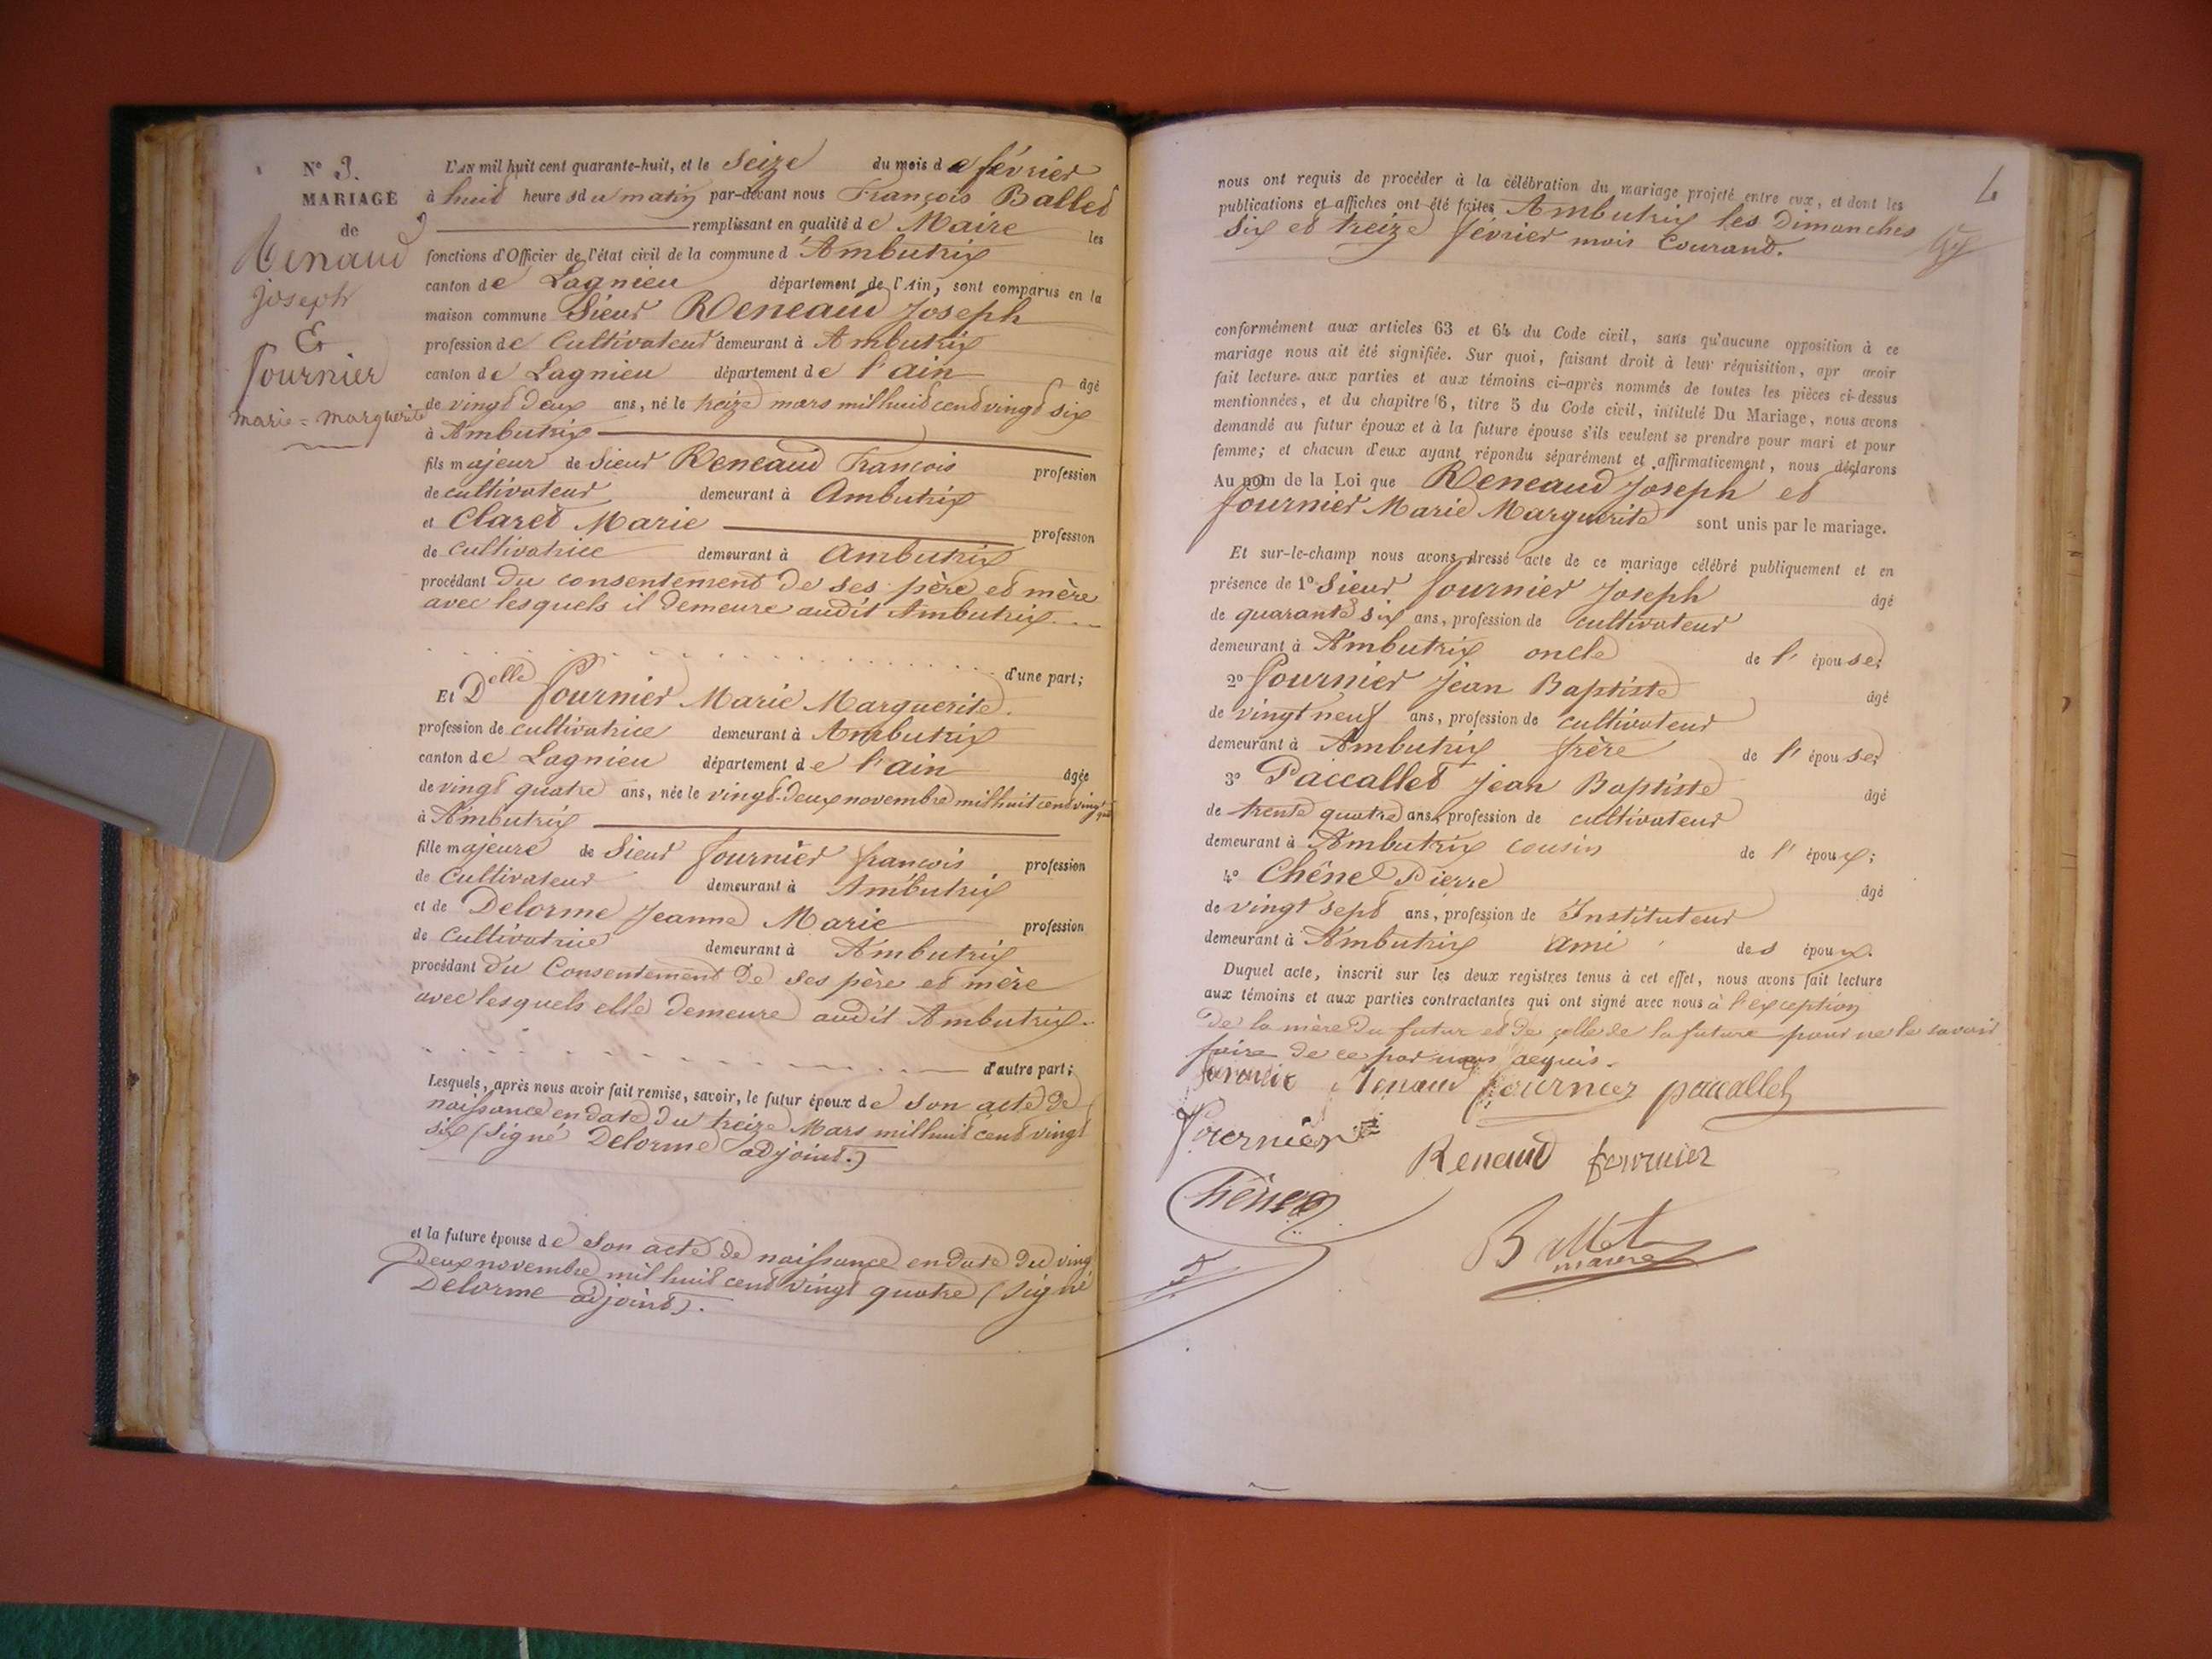 N° 3.
MARIAGE
de
Renaud
joseph
&
fournier
marie = marguerite
L'AN mil huit cent quarante-huit, et le Seize du mois de février
à huit heures du matin par-devant nous François Ballet
remplissant en qualité de Maire les
fonctions d'Officier de l'état civil de la commune d'Ambutrix
canton de Lagnieu département de l'Ain, sont comparus en la
maison commune Sieur Reneaud Joseph
profession de Cultivateur demeurant à Ambutrix
canton de Lagnieu département de l'ain âgé
de vingt deux ans, né le treize mars mil huit cent vingt six
à Ambutrix
fils majeur de Sieur Reneaud François profession
de cultivateur demeurant à Ambutrix
et Claret Marie profession
de cultivatrice demeurant à Ambutrix
procédant du consentement de ses père et mère
avec lesquels il demeure audit Ambutrix
d'une part;
Et Delle fournier Marie Marguerite.
profession de cultivatrice demeurant à Ambutrix
canton de Lagnieu département de l'ain âgée
de vingt quatre ans, née le vingt-deux novembre mil huit cent vingt quatre
à Ambutrix
fille majeure de Sieur fournier françois profession
de Cultivateur demeurant à Ambutrix
et de Delorme Jeanne Marie profession
de Cultivatrice demeurant à Ambutrix
procédant du Consentement de ses père et mère
avec lesquels elle demeure audit Ambutrix.
d'autre part;
Lesquels, après nous avoir fait remise, savoir, le futur époux de son acte de
naissance en date du treize Mars mil huit cent vingt
six (signé Delorme adjoint.)
et la future épouse de son acte de naissance en date du vingt
deux novembre mil huit cent vingt quatre (signé
Delorme adjoint).
4
nous ont requis de procéder à la célébration du mariage projeté entre eux, et dont les
publications et affiches ont été faites Ambutrix les Dimanches
six et treize février mois Courant.
conformément aux articles 63 et 64 du Code civil, sans qu'aucune opposition à ce
mariage nous ait été signifiée. Sur quoi, faisant droit à leur réquisition, apr avoir
fait lecture aux parties et aux témoins ci-après nommés de toutes les pièces ci-dessus
mentionnées, et du chapitre 6, titre 5 du Code civil, intitulé Du Mariage, nous avons
demandé au futur époux et à la future épouse s'ils veulent se prendre pour mari et pour
femme; et chacun d'eux ayant répondu séparément et affirmativement, nous déclarons
Au nom de la Loi que Reneaud Joseph et
fournier Marie Marguerite sont unis par le mariage.
Et sur-le-champ nous avons dressé acte de ce mariage célébré publiquement et en
présence de 1° Sieur fournier Joseph âgé
de quarante six ans, profession de cultivateur
demeurant à Ambutrix oncle de l'épouse;
2° fournier Jean Baptiste âgé
de vingt neuf ans, profession de cultivateur
demeurant à Ambutrix frère de l'épouse;
3° Paccallet Jean Baptiste âgé
de trente quatre ans, profession de cultivateur
demeurant à Ambutrix cousin de l'époux;
4° Chênel Pierre âgé
de vingt sept ans, profession de Instituteur
demeurant à Ambutrix ami des époux.
Duquel acte, inscrit sur les deux registres tenus à cet effet, nous avons fait lecture
aux témoins et aux parties contractantes qui ont signé avec nous à l'exception
de la mère du futur et de celle de la future pour ne le savoir
faire de ce par nous requis.
Renaud fournier paccallet
fournier
Renaud fournier
Chênel
Ballet
maire